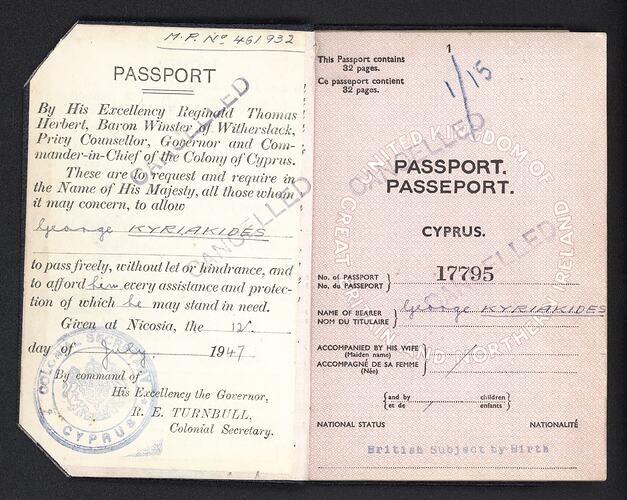 M.P. Nº 461932
PASSPORT
By His Excellency Reginald Thomas
Herbert, Baron Winster of Witherslack,
Privy Counsellor, Governor and Com-
mander-in-Chief of the Colony of Cyprus.
These are to request and require in
the Name of His Majesty, all those whom
it may concern, to allow
George KYRIAKIDES
to pass freely, without let or hindrance, and
to afford him every assistance and protec-
tion of which he may stand in need.
Given at Nicosia, the 12
day of July 1947
By command of
His Excellency the Governor,
R. E. TURNBULL,
Colonial Secretary.
COLONIAL SECRETARY
CYPRUS
CANCELLED
CANCELLED
1
This Passport contains
32 pages.
Ce passeport contient
32 pages.
1/15
UNITED KINGDOM OF
GREAT BRITAIN AND NORTHERN IRELAND
PASSPORT.
PASSEPORT.
CYPRUS.
CANCELLED
CANCELLED
No. of PASSPORT
No. du PASSEPORT
17795
NAME OF BEARER
NOM DU TITULAIRE
George KYRIAKIDES
ACCOMPANIED BY HIS WIFE
(Maiden name)
ACCOMPAGNÉ DE SA FEMME
(Née)
and by children
et de enfants
NATIONAL STATUS NATIONALITÉ
British Subject by Birth